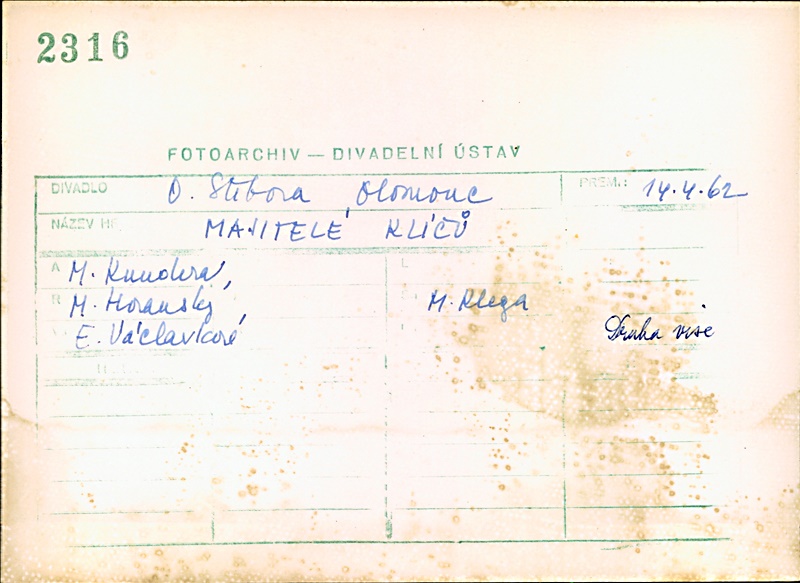 2316
FOTOARCHIV — DIVADELNÍ ÚSTAV
DIVADLO O. Stibora, Olomouc PREM.: 14.4.62
NÁZEV HR. MAJITELÉ KLÍČŮ
A M. Kundera,
R M. Horanský, M. Klega
E. Václavková Druhá vise